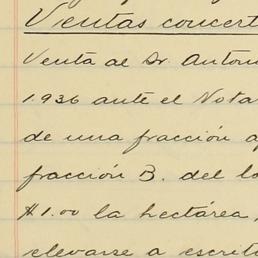 Ventas concert
Venta al Sr. Anton
1.936 ante el Nota
de una fracción a
fracción B. del lo
$1.00 la hectárea,
elevarse a escrit